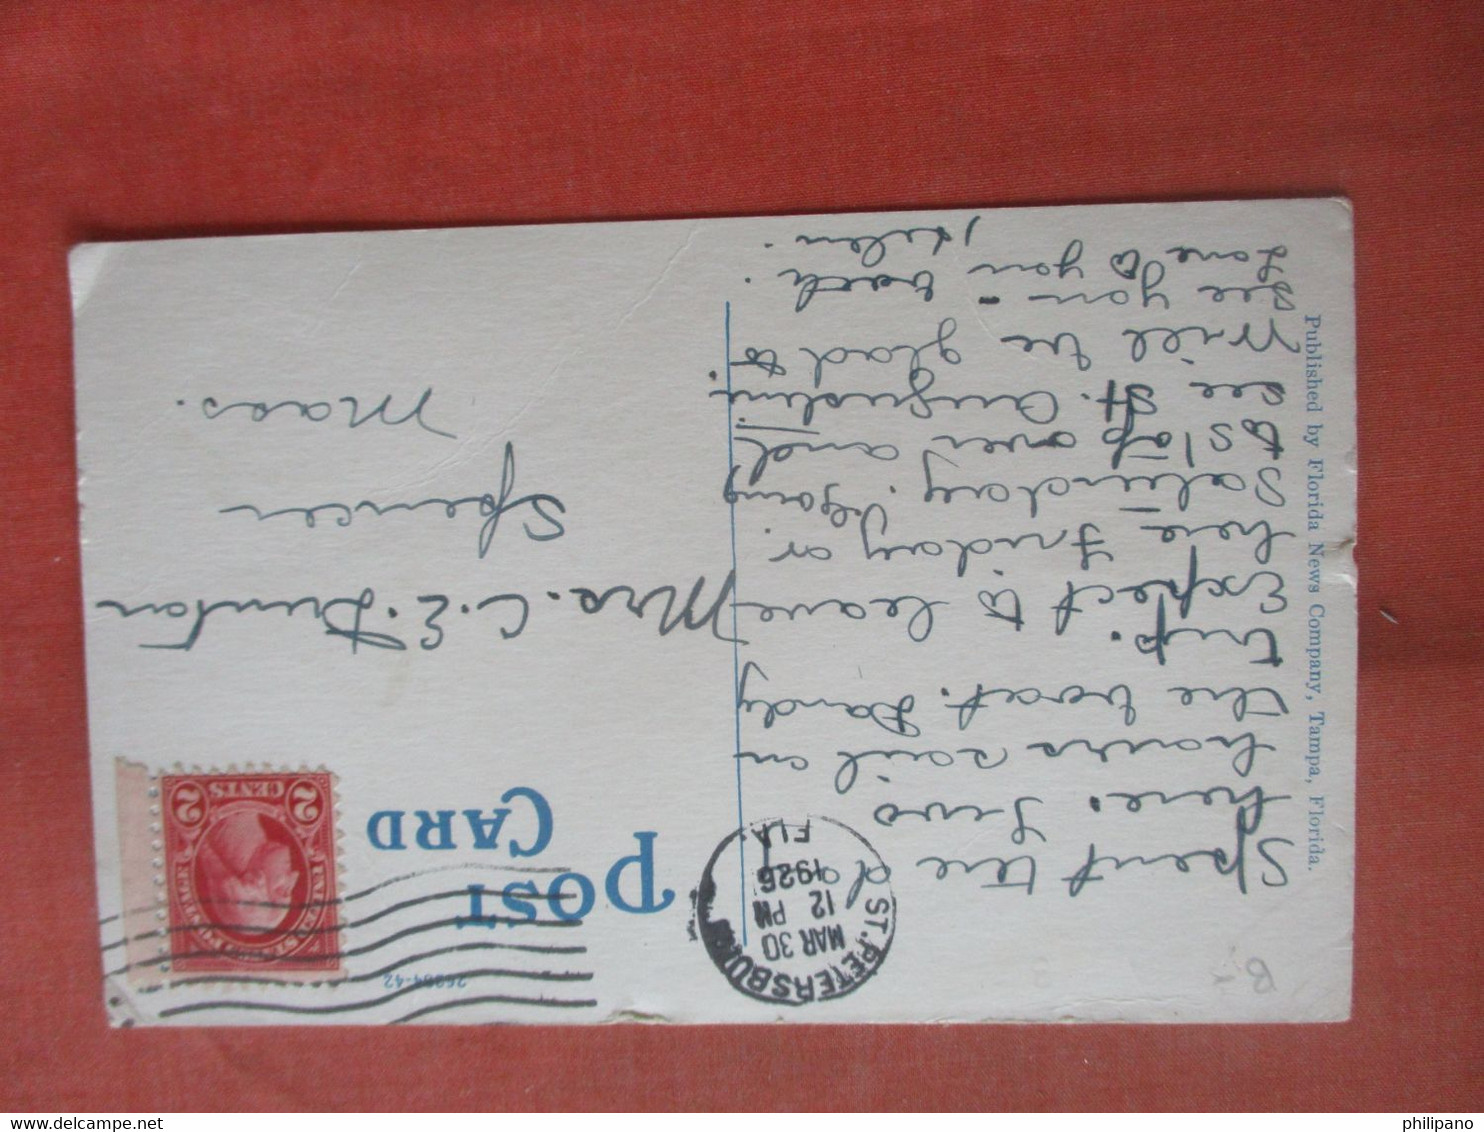 POST
CARD
26284-42
2 CENTS 2
ST. PETERSBURG
MAR 30
12 PM
1926
FLA.
Spent the day
here. Two
hours sail on
the boat. Dandy
trip.
Expect to leave
here Friday or
Saturday. Going
to stop over and
see St. Augustine.
Will be glad to
see you back.
Love to you
Helen.
Mrs. C. E. Dunton
Spencer
Mass.
Published by Florida News Company, Tampa, Florida.
B
philipano
delcampe.net